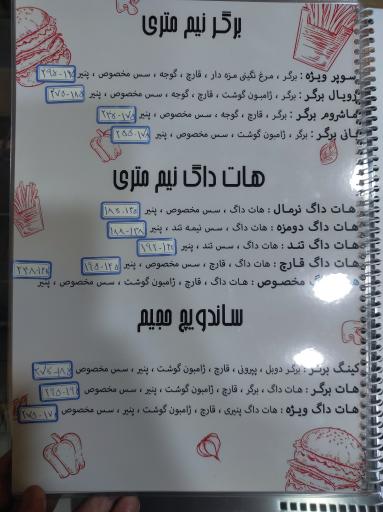 برگر نیم متری
سوپر ویژه : برگر ، مرغ نگینی مزه دار ، قارچ ، گوجه ، سس مخصوص ، پنیر
رویال برگر : برگر ، ژامبون گوشت ، قارچ ، گوجه ، سس مخصوص ، پنیر
ماشروم برگر : برگر ، قارچ ، گوجه ، سس مخصوص ، پنیر
بانی برگر : برگر ، ژامبون گوشت ، سس مخصوص ، پنیر
هات داگ نیم متری
هات داگ نرمال : هات داگ ، سس مخصوص ، پنیر
هات داگ دومزه : هات داگ ، سس نیمه تند ، پنیر
هات داگ تند : هات داگ ، سس تند ، پنیر
هات داگ قارچ : هات داگ ، قارچ ، سس مخصوص ، پنیر
مخصوص : هات داگ ، قارچ ، ژامبون گوشت ، سس مخصوص ، پنیر
ساندویچ حجیم
کینگ برگر : برگر دوبل ، پپرونی ، قارچ ، ژامبون گوشت ، پنیر ، سس مخصوص
هات برگر : هات داگ ، برگر ، قارچ ، ژامبون گوشت ، پنیر ، سس مخصوص
هات داگ ویژه : هات داگ پنیری ، قارچ ، ژامبون گوشت ، پنیر ، سس مخصوص